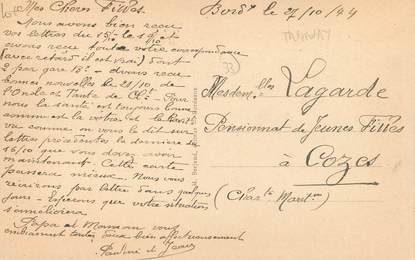 Bord. le 27/10/44
Mes Chères Filles
Nous avons bien reçu
vos lettres du 15/10 le 18/10 et
avons reçu toute votre correspondance
(avec retard il est vrai) dont
2 par gare
bonnes nouvelles le 21/10 de
l'Oncle et Tante de Pour
nous la santé est toujours bonne
comme la votre
vu comme on vous le dit sur
lettre précédente la dernière du
16/10 que vous devez avoir
maintenant. Cette carte
passera mieux. Nous vous
écrirons par lettre dans quelques
jours. Espérons que votre situation
s'améliorera
Papa et Maman vous
embrassent toutes deux bien affectueusement
TRAMWAY
33
Mesdem.elles Lagarde
Pensionnat de Jeunes Filles
à Cozes
(Char.te Marit.me)